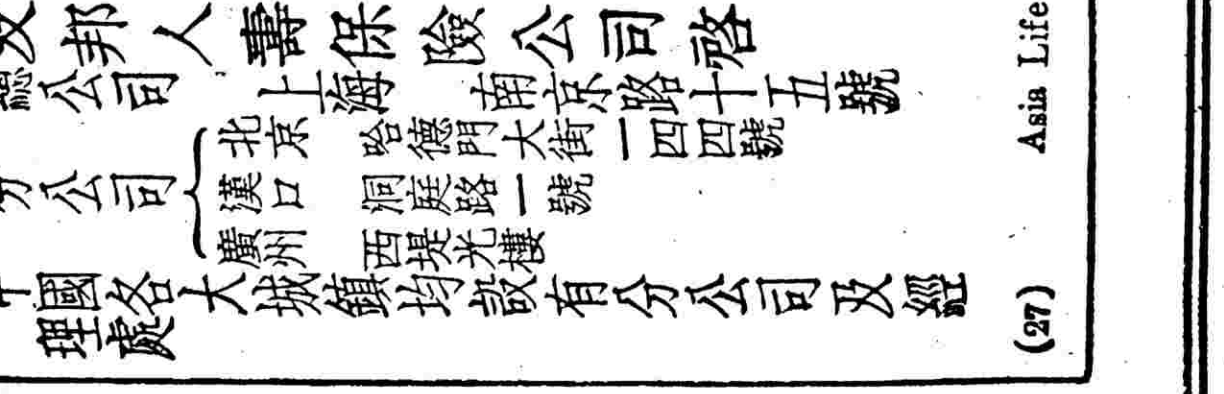 友邦人壽保險公司啓
總公司 上海 南京路十五號
分公司
北京 哈德門大街一四四號
漢口 洞庭路一號
廣州 西堤光樓
國各大城鎮均設有分公司及經
理處
Asia Life
(27)